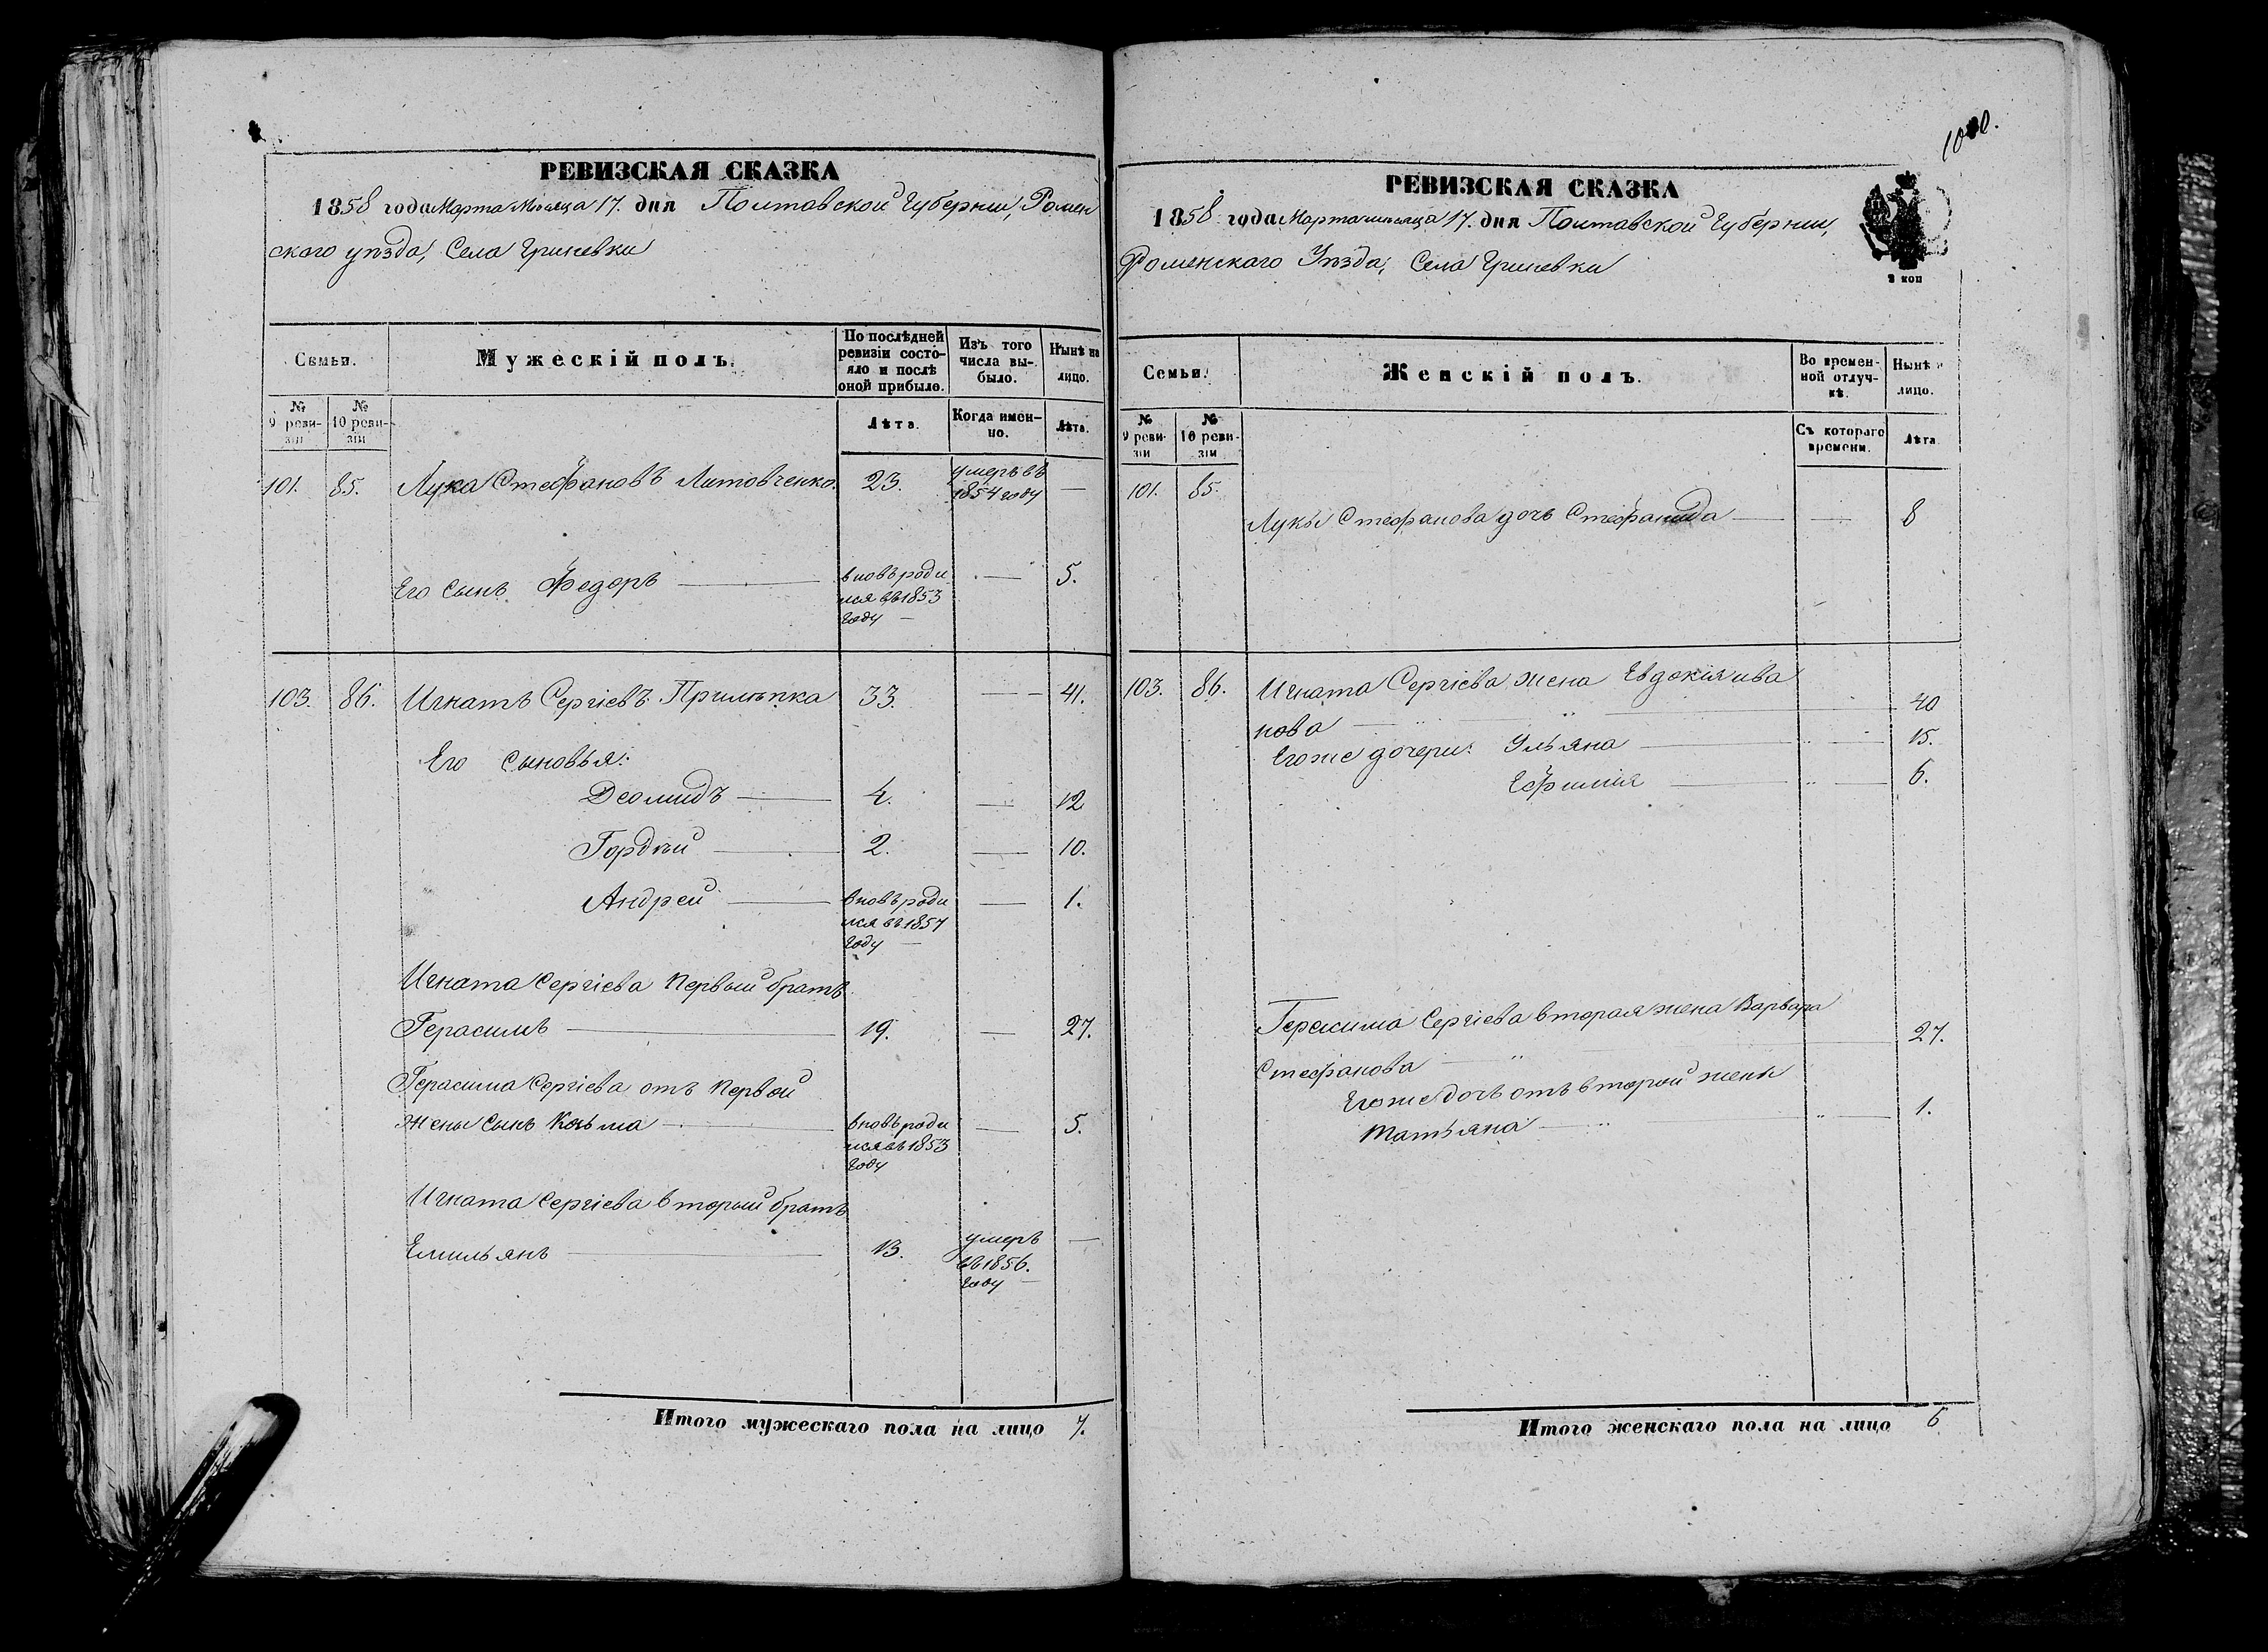 РЕВИЗСКАЯ СКАЗКА
1858 года Марта Месяца 17. дня Полтавской Губернии, Ромен
ского уѣзда, Села Гриневки
Семьи.
Мужескій полъ.
По послѣдней ревизіи состояло и послѣ оной прибыло.
Изъ того числа выбыло.
Нынѣ на лицо.
№ 9 ревизіи
№ 10 ревизіи
Лѣта.
Когда именно.
Лѣта.
101. 85. Лука Стефановъ Литовченко. 23. умеръ въ 1854 году —
Его сынъ Федоръ — вновь роди
лся въ 1853
году — — 5.
103. 86. Игнатъ Сергіевъ Прилѣпка 33. — 41.
Его сыновья:
Деомидъ — 4. — 12
Гордѣй — 2. — 10.
Андрей — вновь роди — 1.
лся въ 1857
году —
Игната Сергіева Первый братъ
Герасимъ — 19. — 27.
Герасима Сергіева отъ первой
жены сынъ Козьма — вновь роди — 5.
лся въ 1853
году
Игната Сергіева вторый братъ
Емильянъ — 13. умеръ —
въ 1856.
году —
Итого мужескаго пола на лицо 7.
РЕВИЗСКАЯ СКАЗКА
1858 года Марта месяца 17. дня Полтавской Губернии,
Роменскаго Уѣзда, Села Гриневки
Семьи.
Женскій полъ.
Во временной отлучкѣ.
Нынѣ на лицо.
№ 9 ревизіи
№ 10 ревизіи
Съ котораго времени.
Лѣта.
101. 85.
Луки Стефанова дочь Стефанида — — 8
103. 86. Игната Сергіева жена Евдокія ива
нова — " — 40
Его же дочери: Ульяна — " — 15.
Ефимія — " — 6.
Герасима Сергіева вторая жена Варвара
Стефанова — " — 27.
Его же дочь отъ второй жены
Татьяна — " — 1.
Итого женскаго пола на лицо 6.